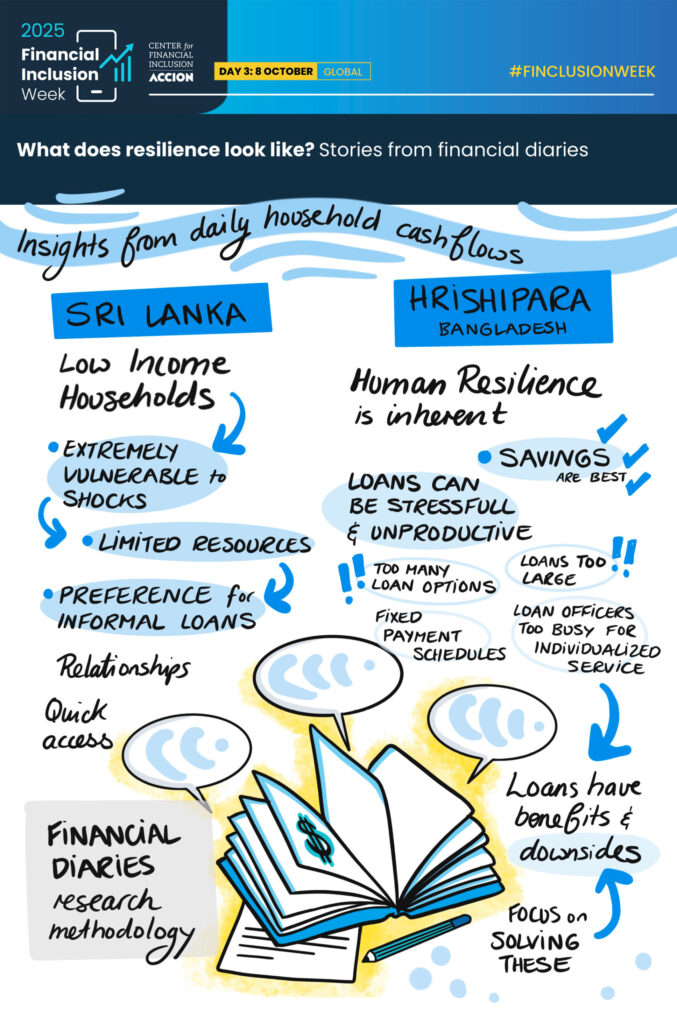 2025
Financial
Inclusion
Week
CENTER for
FINANCIAL
INCLUSION
ACCION
DAY 3: 8 OCTOBER
GLOBAL
#FINCLUSIONWEEK
What does resilience look like? Stories from financial diaries
Insights from daily household cashflows
SRI LANKA
Low Income
Households
• EXTREMELY
VULNERABLE to
SHOCKS
• LIMITED RESOURCES
• PREFERENCE for
INFORMAL LOANS
Relationships
Quick
access
FINANCIAL
DIARIES
research
methodology
$
HRISHIPARA
BANGLADESH
Human Resilience
is inherent
• SAVINGS
ARE BEST
LOANS CAN
BE STRESSFULL
& UNPRODUCTIVE
!! TOO MANY
LOAN OPTIONS
LOANS TOO !!
LARGE
FIXED
PAYMENT
SCHEDULES
LOAN OFFICERS
TOO BUSY FOR
INDIVIDUALIZED
SERVICE
Loans have
benefits &
downsides
FOCUS on
SOLVING
THESE